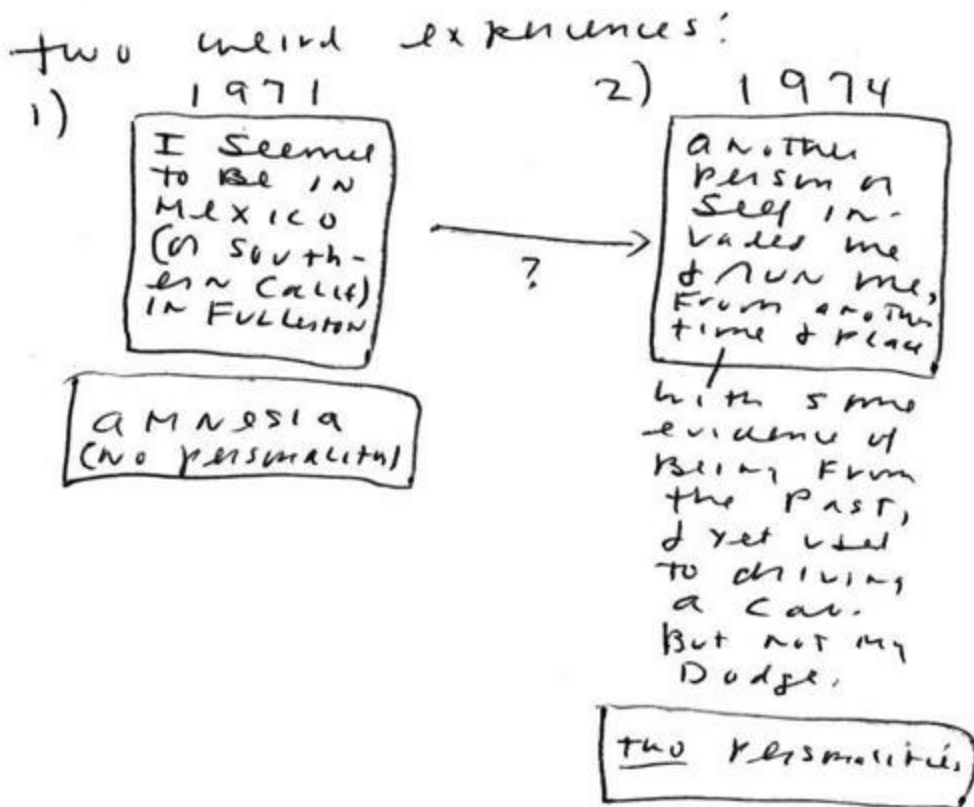 two weird experiences:
1) 1971
I seemed
to be in
Mexico
(or South-
ern Calif)
in Fullerton
amnesia
(no personality)
?
2) 1974
another
person or
self in-
vades me
& run me,
from another
time & place
with some
evidence of
being from
the past,
& yet used
to driving
a car.
But not my
Dodge.
two personalities